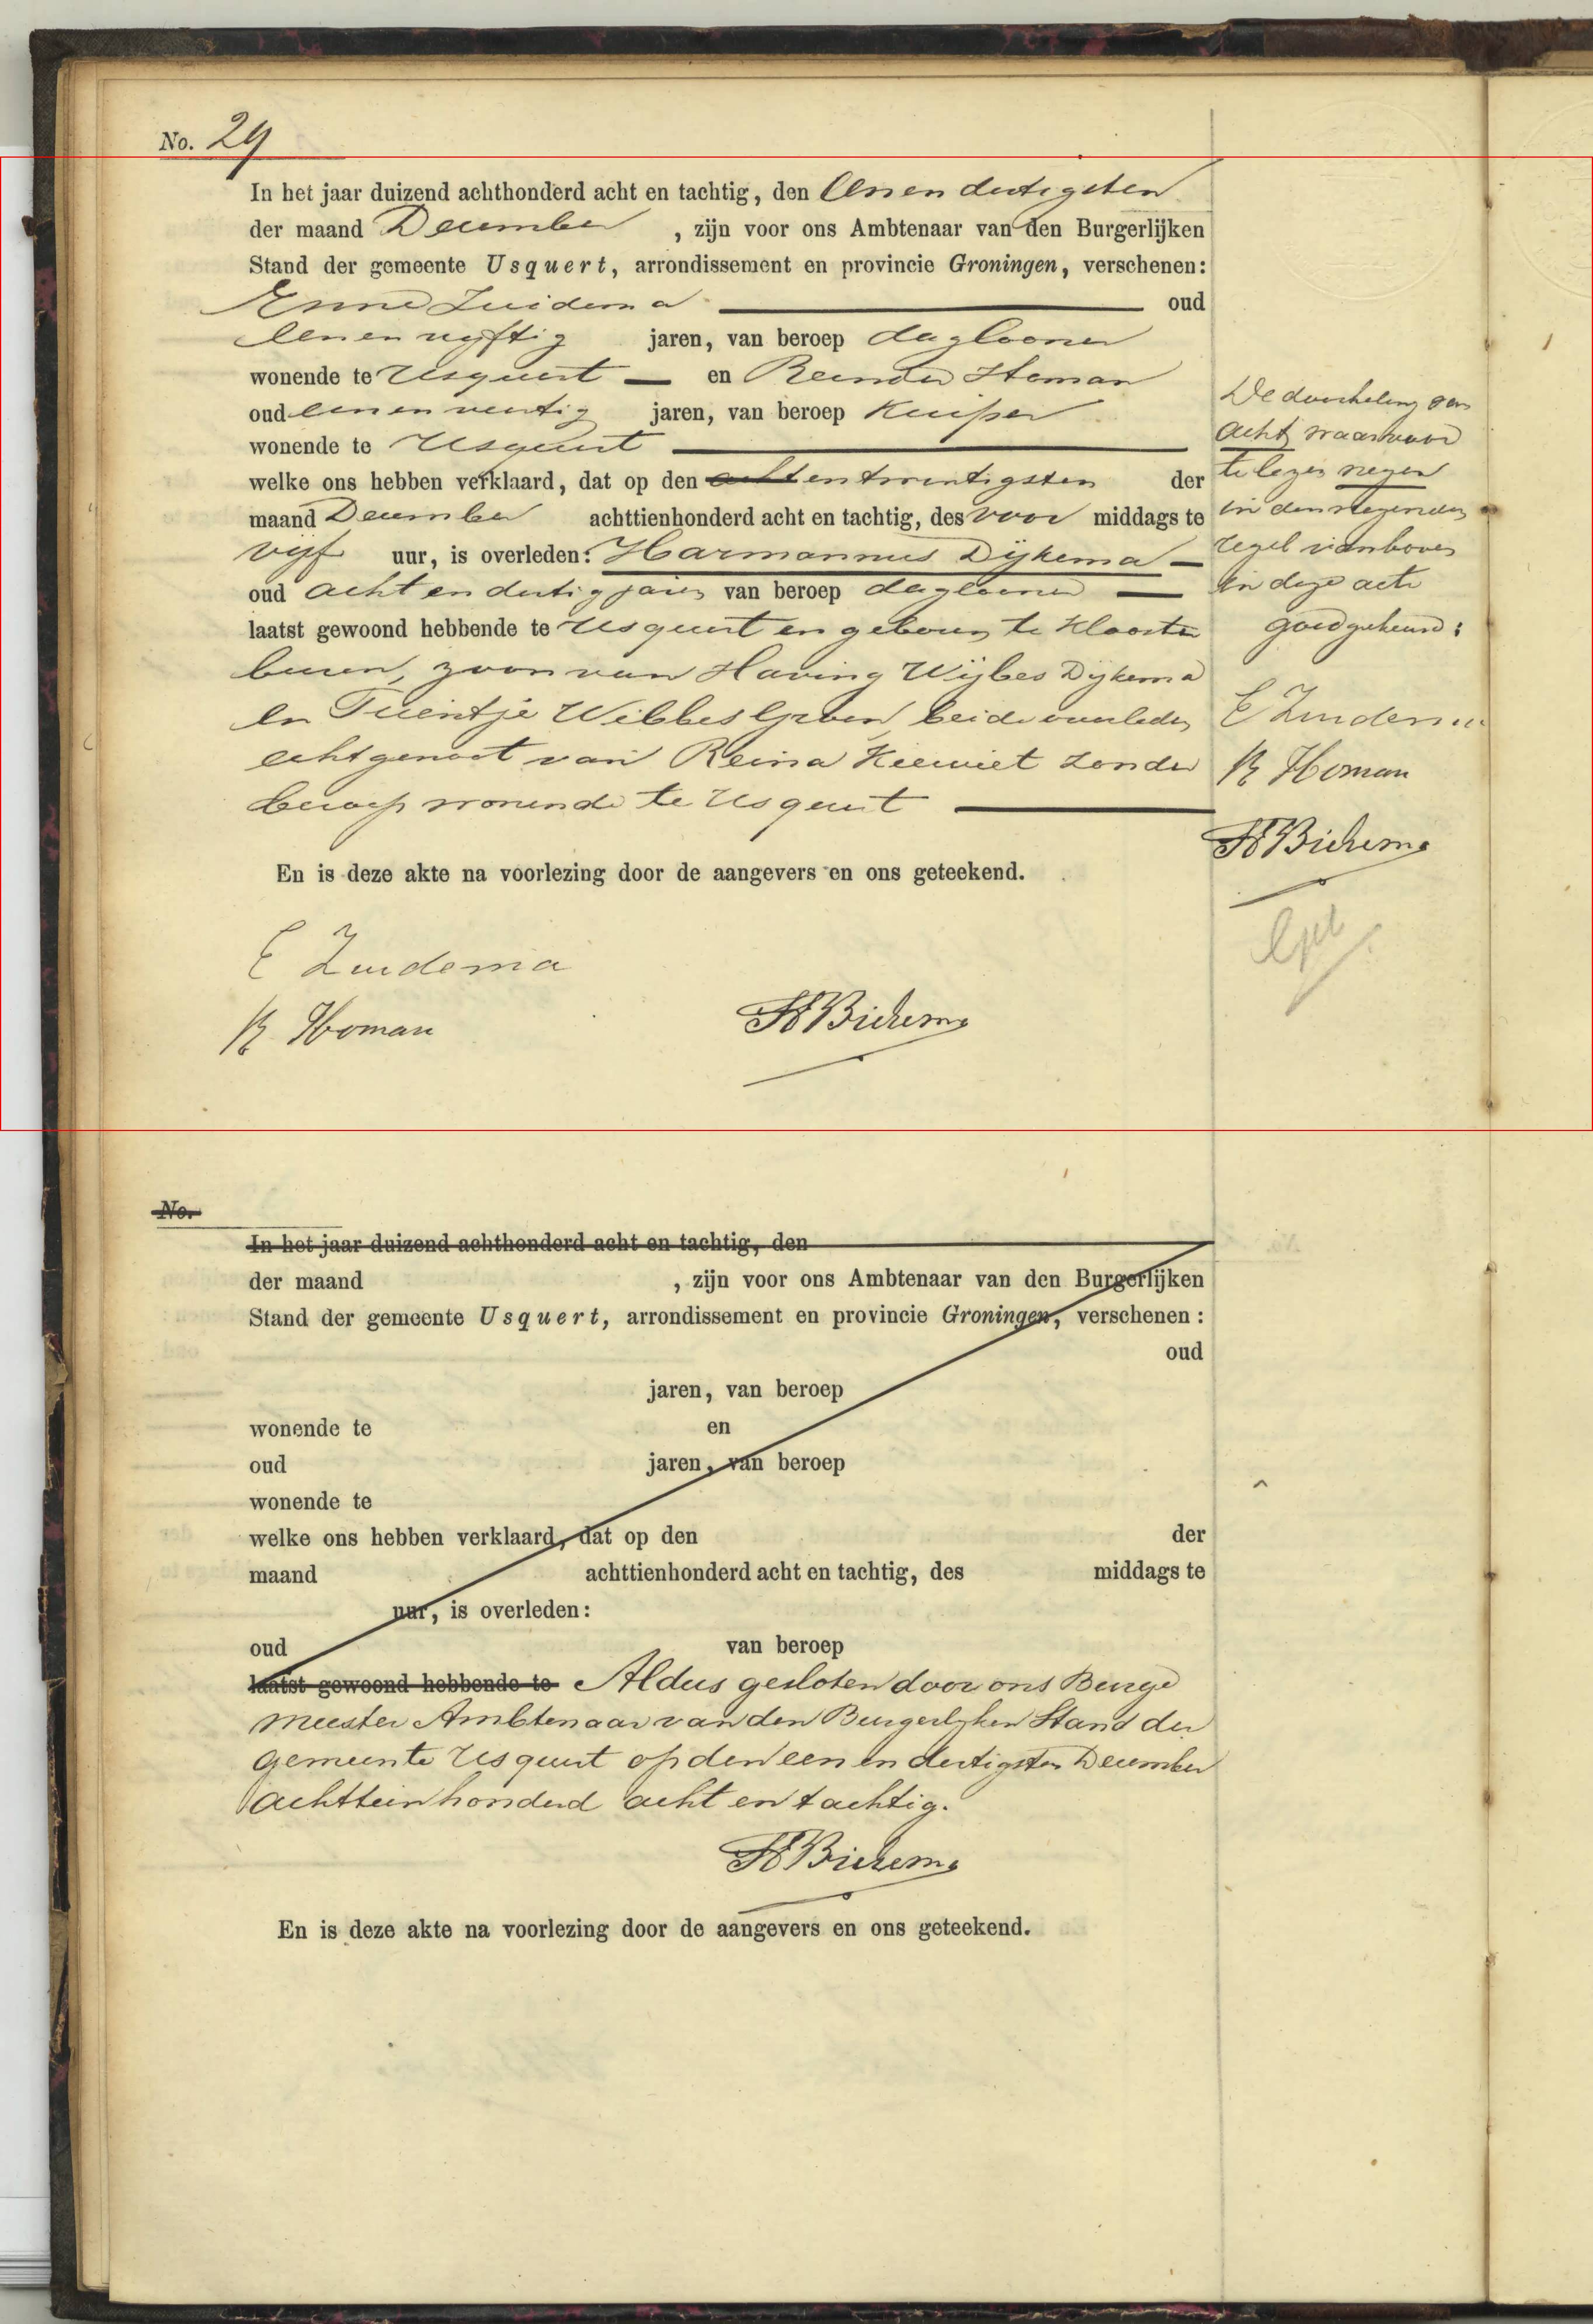 No. 29
In het jaar duizend achthonderd acht en tachtig, den een en dertigsten
der maand December , zijn voor ons Ambtenaar van den Burgerlijken
Stand der gemeente Usquert, arrondissement en provincie Groningen, verschenen:
Enne Zuidema oud
een en vyftig jaren, van beroep daglooner
wonende te Usquert en Reinder Homan
oud een en veertig jaren, van beroep Kuiper
wonende te Usquert
welke ons hebben verklaard, dat op den acht en twintigsten der
maand December achttienhonderd acht en tachtig, des voor middags te
vyf uur, is overleden: Harmannus Dijkema
oud acht en dertig jaren van beroep daglooner
laatst gewoond hebbende te Usquert en geboren te Klooster
buren, zoon van Having Wijbes Dijkema
en Trientje Wibbes Groen, beide overleden
echtgenoot van Reina Kieviet zonder
beroep wonende te Usquert
En is deze akte na voorlezing door de aangevers en ons geteekend.
E Zuidema
R Homan
H Bierema
De doorhaling van
acht waarvoor
te lezen negen
in den negenden
regel van boven
in deze acte
goedgekeurd:
E Zuidema
R Homan
H Bierema
No.
In het jaar duizend achthonderd acht en tachtig, den
der maand , zijn voor ons Ambtenaar van den Burgerlijken
Stand der gemeente Usquert, arrondissement en provincie Groningen, verschenen:
oud
jaren, van beroep
wonende te en
oud jaren, van beroep
wonende te
welke ons hebben verklaard, dat op den der
maand achttienhonderd acht en tachtig, des middags te
uur, is overleden:
oud van beroep
laatst gewoond hebbende te Aldus gesloten door ons Burge
meester Ambtenaar van den Burgerlyken Stand der
gemeente Usquert op den een en dertigsten December
achttienhonderd acht en tachtig.
H Bierema
En is deze akte na voorlezing door de aangevers en ons geteekend.